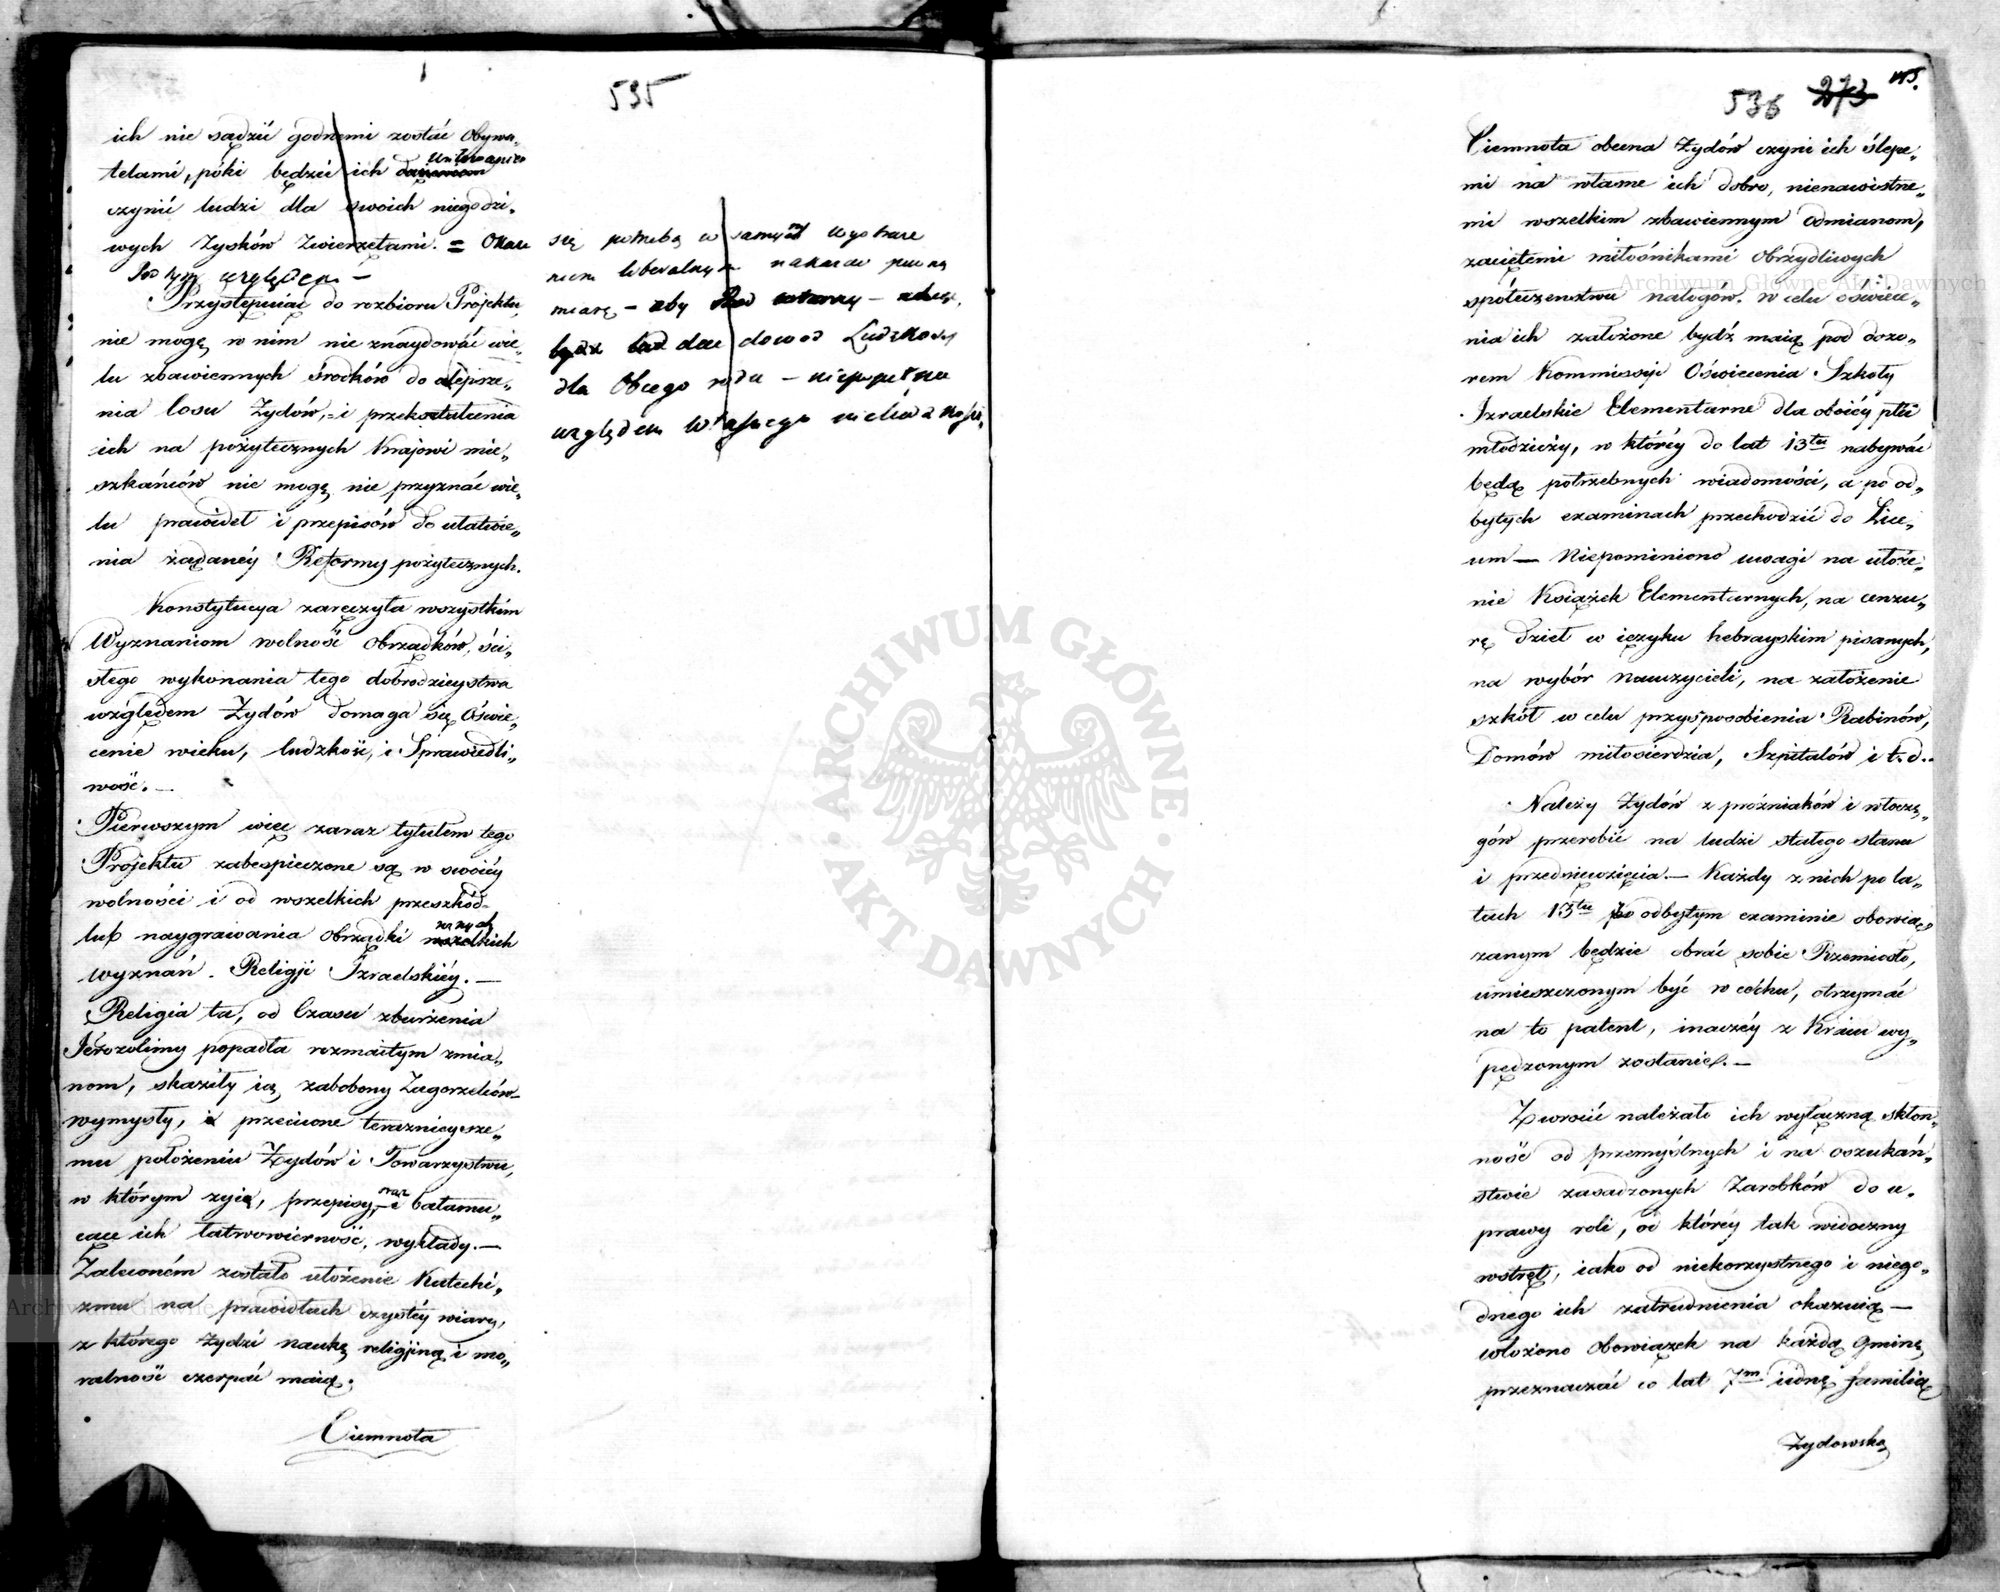 535
ich nie sądzić godnemi zostać Obywa„
telami, póki będzie ich
czynić ludzi dla swoich niegodzi„
wych Zysków Zwierzętami. = Okaże
Pod tym względem –
się potrzeba w samych wyobraże
niem liberalnym nakazać pewną
miarę – aby
dać dowod Ludzkości
dla Obcego rodu – niepopełnić
względem Własnego nieludzkości.
Przystępuiąc do rozbioru Projektu,
nie mogę w nim nie znaydować wie„
lu zbawiennych środków do ulepsze„
nia losu Żydów, i przekształcenia
ich na pożytecznych Krajowi mie„
szkańców nie mogę nie przyznać wie„
lu prawideł i przepisów do ułatwie„
nia żądanéy Reformy pożytecznych.
Konstytucya zaręczyła wszystkim
Wyznaniom wolność Obrządków, ści„
słego wykonania tego dobrodzieystwa
względem Żydów domaga się Oświe„
cenie wieku, ludzkość, i Sprawiedli„
wość. —
Pierwszym więc zaraz tytułem tego
Projektu zabespieczone są w swoiéy
wolności i od wszelkich przeszkód
lub naygrawania obrządki
wyznań Religji Izraelskiéy. —
Religia ta, od Czasu zburzenia
Jerozolimy popadła rozmaitym zmia„
nom, skaziły ią zabobony Zagorzelców
wymysły, i przeciwne teraznieysze„
mu położeniu Żydów i Towarzystwu,
w którym żyią, przepisy, oraz bałamu„
cące ich łatwowierność, wykłady. —
Zaleconém zostało ułożenie Katechi„
zmu na prawidłach czystéy wiary,
z którego Żydzi naukę religijną i mo„
ralność czerpać maią.
Ciemnota
536 273 115.
Ciemnota obecna Żydów czyni ich ślepe„
mi na własne ich dobro, nienawistne„
mi wszelkim zbawiennym Odmianom,
zaciętemi miłośnikami Obrzydliwych
społeczeństwu nałogów. W celu oświece„
nia ich założone bydź maią pod dozo„
rem Kommissyi Oświecenia Szkoły
Izraelskie Elementarne dla oboiéy płci
młodzieży, w któréy do lat 13tu nabywać
będą potrzebnych wiadomości, a po od„
bytych examinach przechodzić do Lice„
um — Niepominiono uwagi na ułoże„
nie Książek Elementarnych, na cenzu„
rę dzieł w ięzyku hebrayskim pisanych,
na wybór Nauczycieli, na założenie
szkół w celu przysposobienia Rabinów,
Domów miłosierdzia, Szpitalów i t. d..
Należy Żydów z próżniaków i włoczę„
gów przerobić na ludzi stałego stanu
i przedsięwzięcia. — Każdy z nich po la„
tach 13tu po odbytym examinie obowią„
zanym będzie obrać sobie Rzemiosło,
umieszczonym być w cechu, otrzymać
na to patent, inaczéy z Kraiu wy„
pędzonym zostanie. —
Zwrócić należało ich wyłączną skłon„
ność od przemyślnych i na oszukań„
stwie zasadzonych Zarobków do u„
prawy roli, od któréy tak widoczny
wstręt, iako od niekorzystnego i niego„
dnego ich zatrudnienia okazuią —
włożono Obowiązek na każdą Gminę
przeznaczać co lat 7m iednę familią
Żydowską
Archiwum Główne Akt Dawnych
ARCHIWUM GŁÓWNE · AKT DAWNYCH ·
Archiwum Główne Akt Dawnych